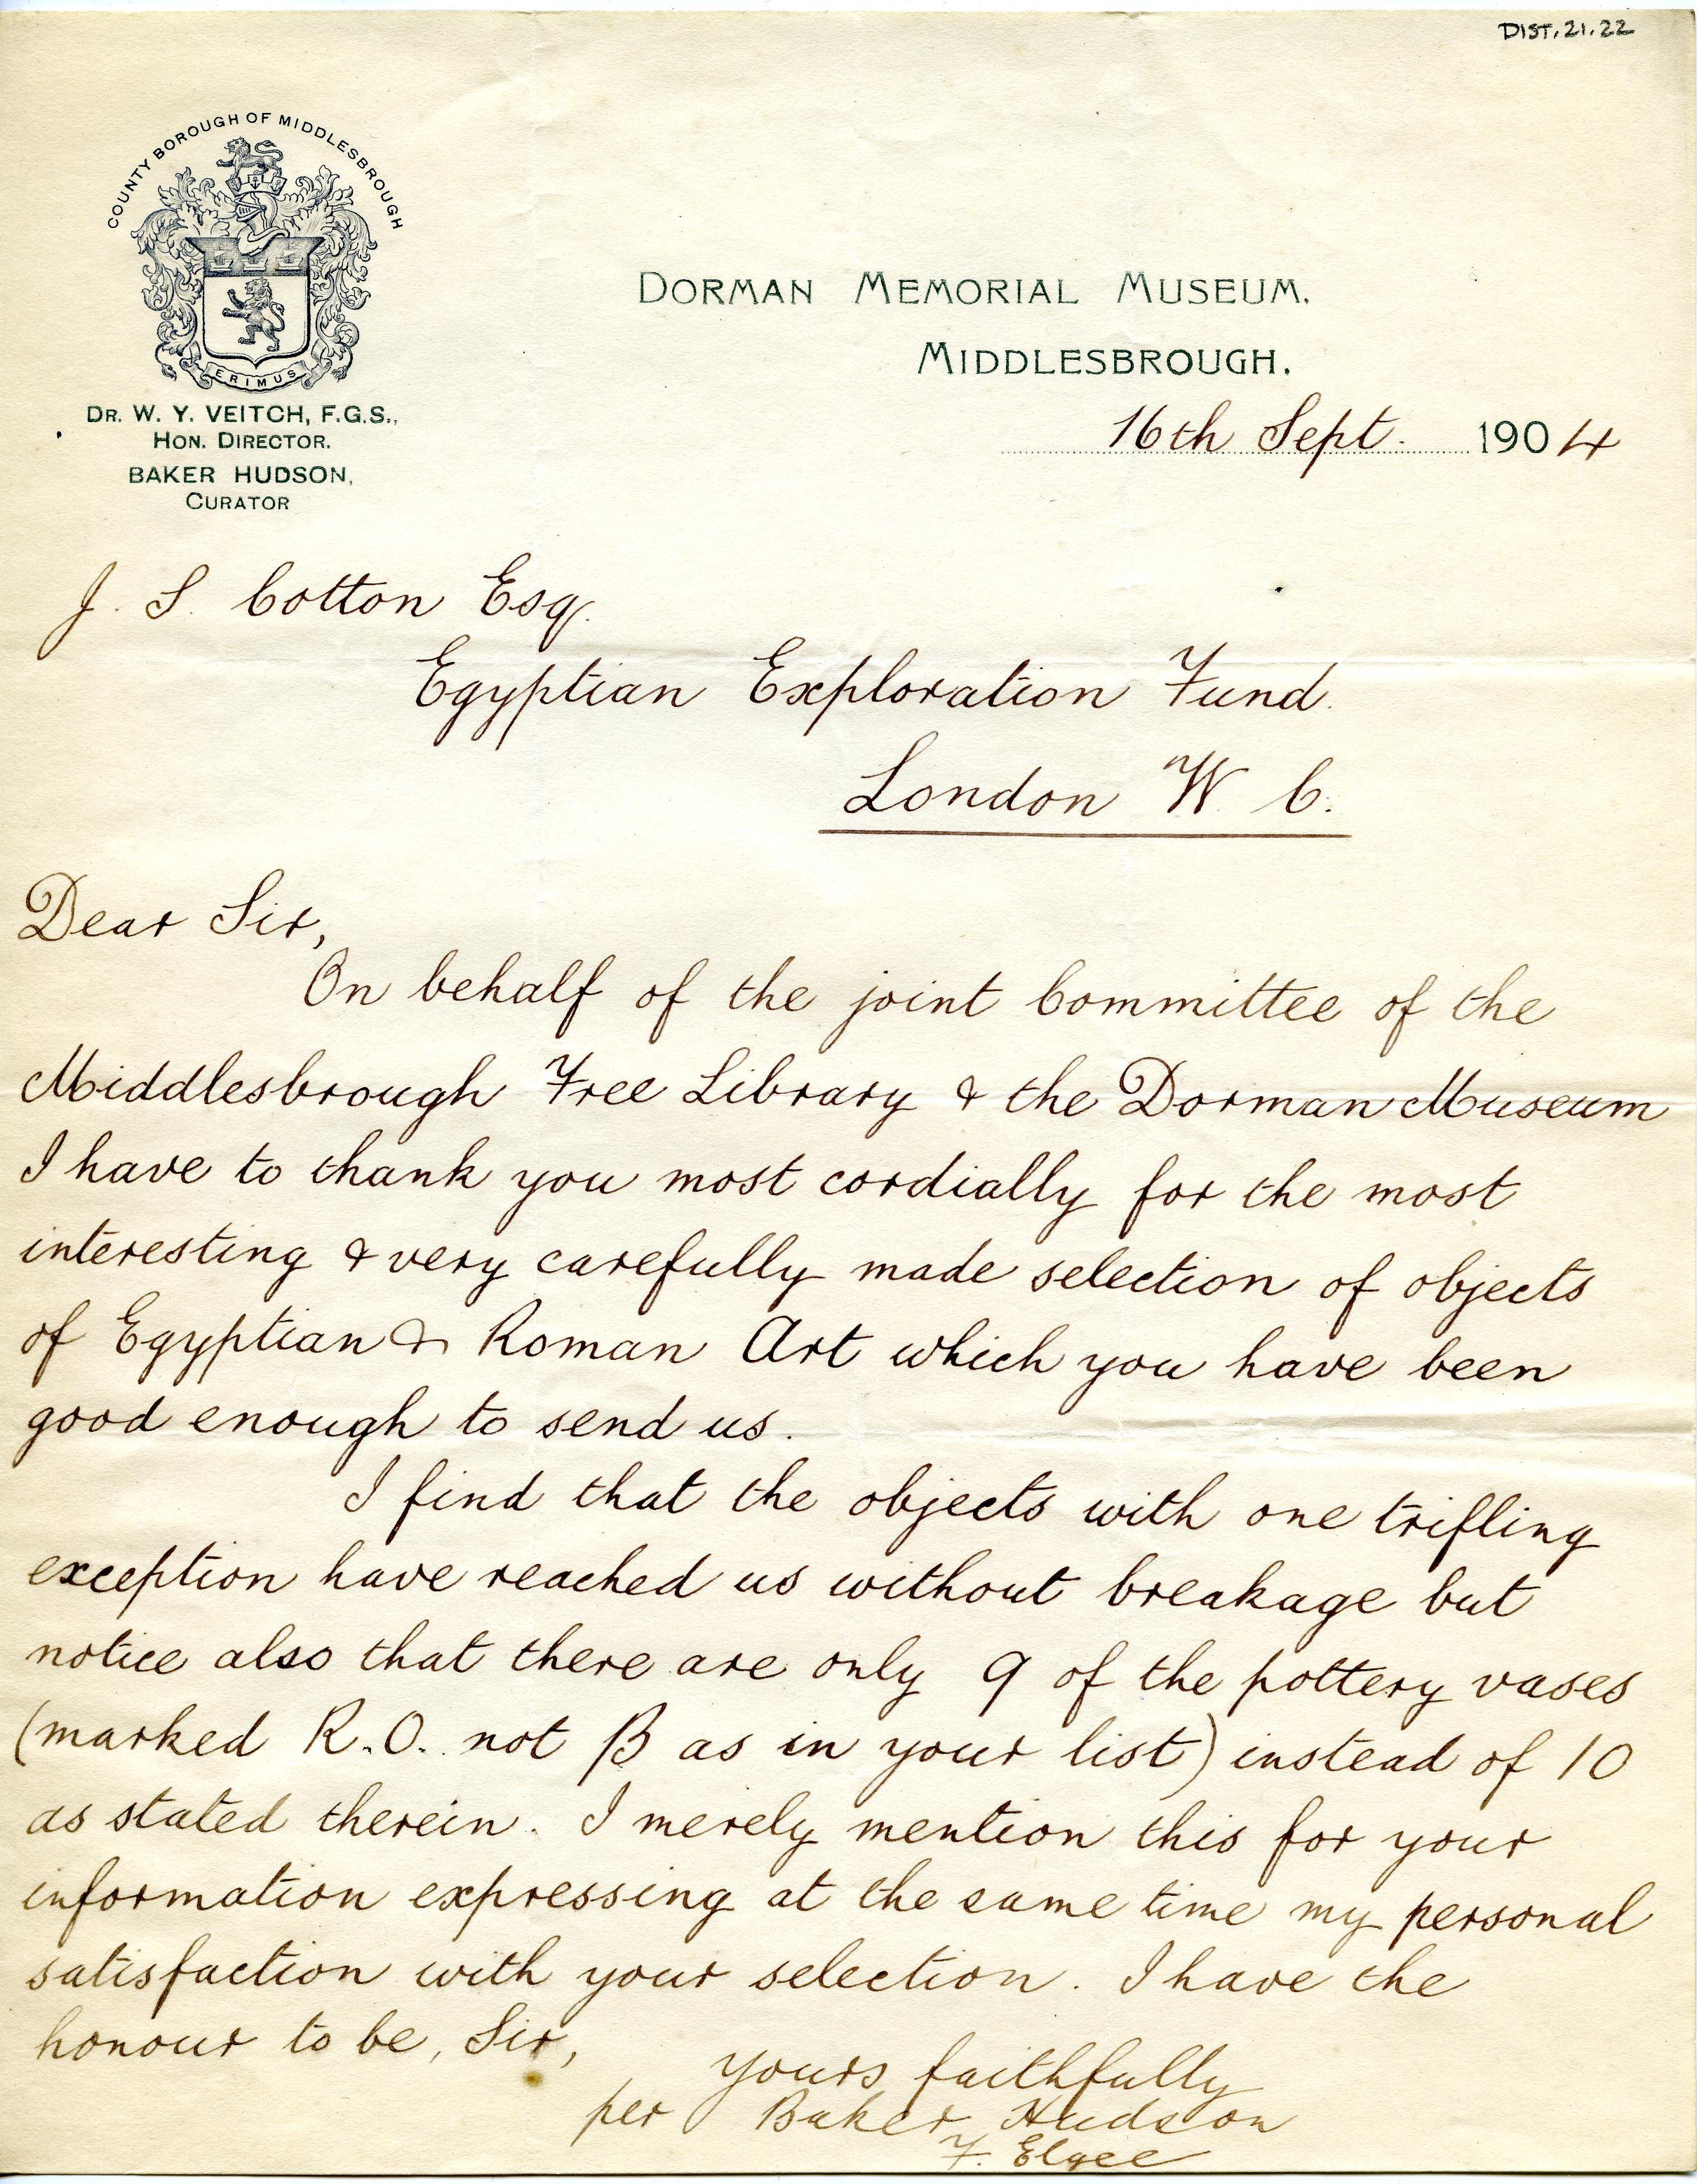 DIST.21.22
COUNTY BOROUGH OF MIDDLESBROUGH
ERIMUS
DR. W. Y. VEITCH, F.G.S.,
HON. DIRECTOR.
BAKER HUDSON,
CURATOR
DORMAN MEMORIAL MUSEUM.
MIDDLESBROUGH.
16th Sept. 1904
J. S. Cotton Esq.
Egyptian Exploration Fund.
London W. C.
Dear Sir,
On behalf of the joint Committee of the
Middlesbrough Free Library & the Dorman Museum
I have to thank you most cordially for the most
interesting & very carefully made selection of objects
of Egyptian & Roman Art which you have been
good enough to send us.
I find that the objects with one trifling
exception have reached us without breakage but
notice also that there are only 9 of the pottery vases
(marked R.O. not B as in your list) instead of 10
as stated therein. I merely mention this for your
information expressing at the same time my personal
satisfaction with your selection. I have the
honour to be, Sir,
yours faithfully
per Baker Hudson
F. Elgee